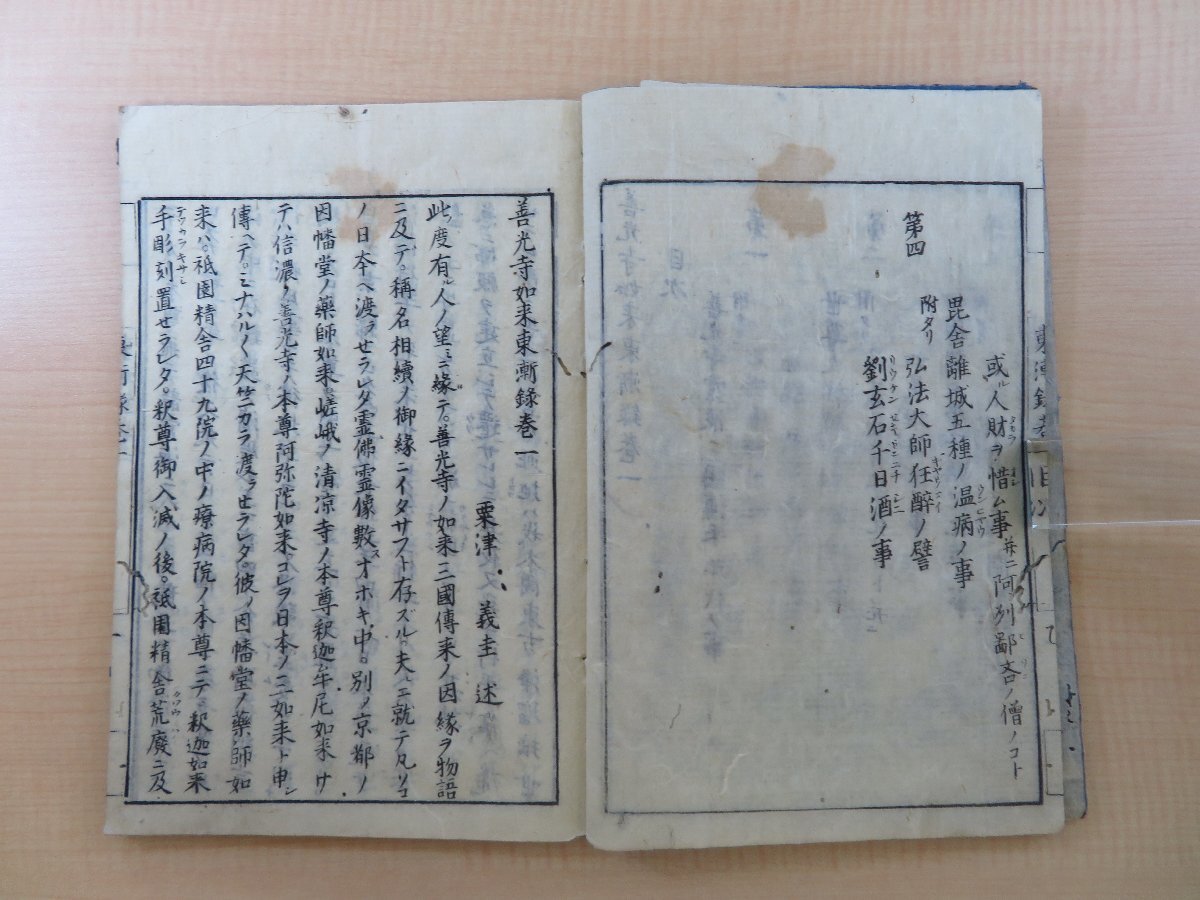 或ル人財ヲ惜ム事 并ニ阿列鄙吝ノ僧ノコト
第四
毘舎離城五種ノ温病ノ事
附タリ 弘法大師狂酔ノ譬
劉玄石千日酒ノ事
善光寺如来東漸録巻一
粟津 義圭 述
此ノ度有ル人ノ望ミニ縁テ。善光寺ノ如来三國傳来ノ因縁ヲ物語
ニ及デ。稱名相續ノ御縁ニイタサフト存ズル。夫レニ就テ凡ソコ
ノ日本ヘ渡ラせラレタ霊佛霊像數オホキ中。別ノ京都ノ
因幡堂ノ薬師如来。嵯峨ノ清凉寺ノ本尊釈迦牟尼如来。サ
テハ信濃ノ善光寺ノ本尊阿弥陀如来。コレヲ日本ノ三如来ト申シ
傳ヘテ。ミナハルく天竺カラ渡ラせラレタ。彼ノ因幡堂ノ薬師如
来ハ。祇園精舎四十九院ノ中ノ療病院ノ本尊ニテ。釈迦如来
手彫刻置せラレタ。釈尊御入滅ノ後。祇園精舎荒廢ニ及